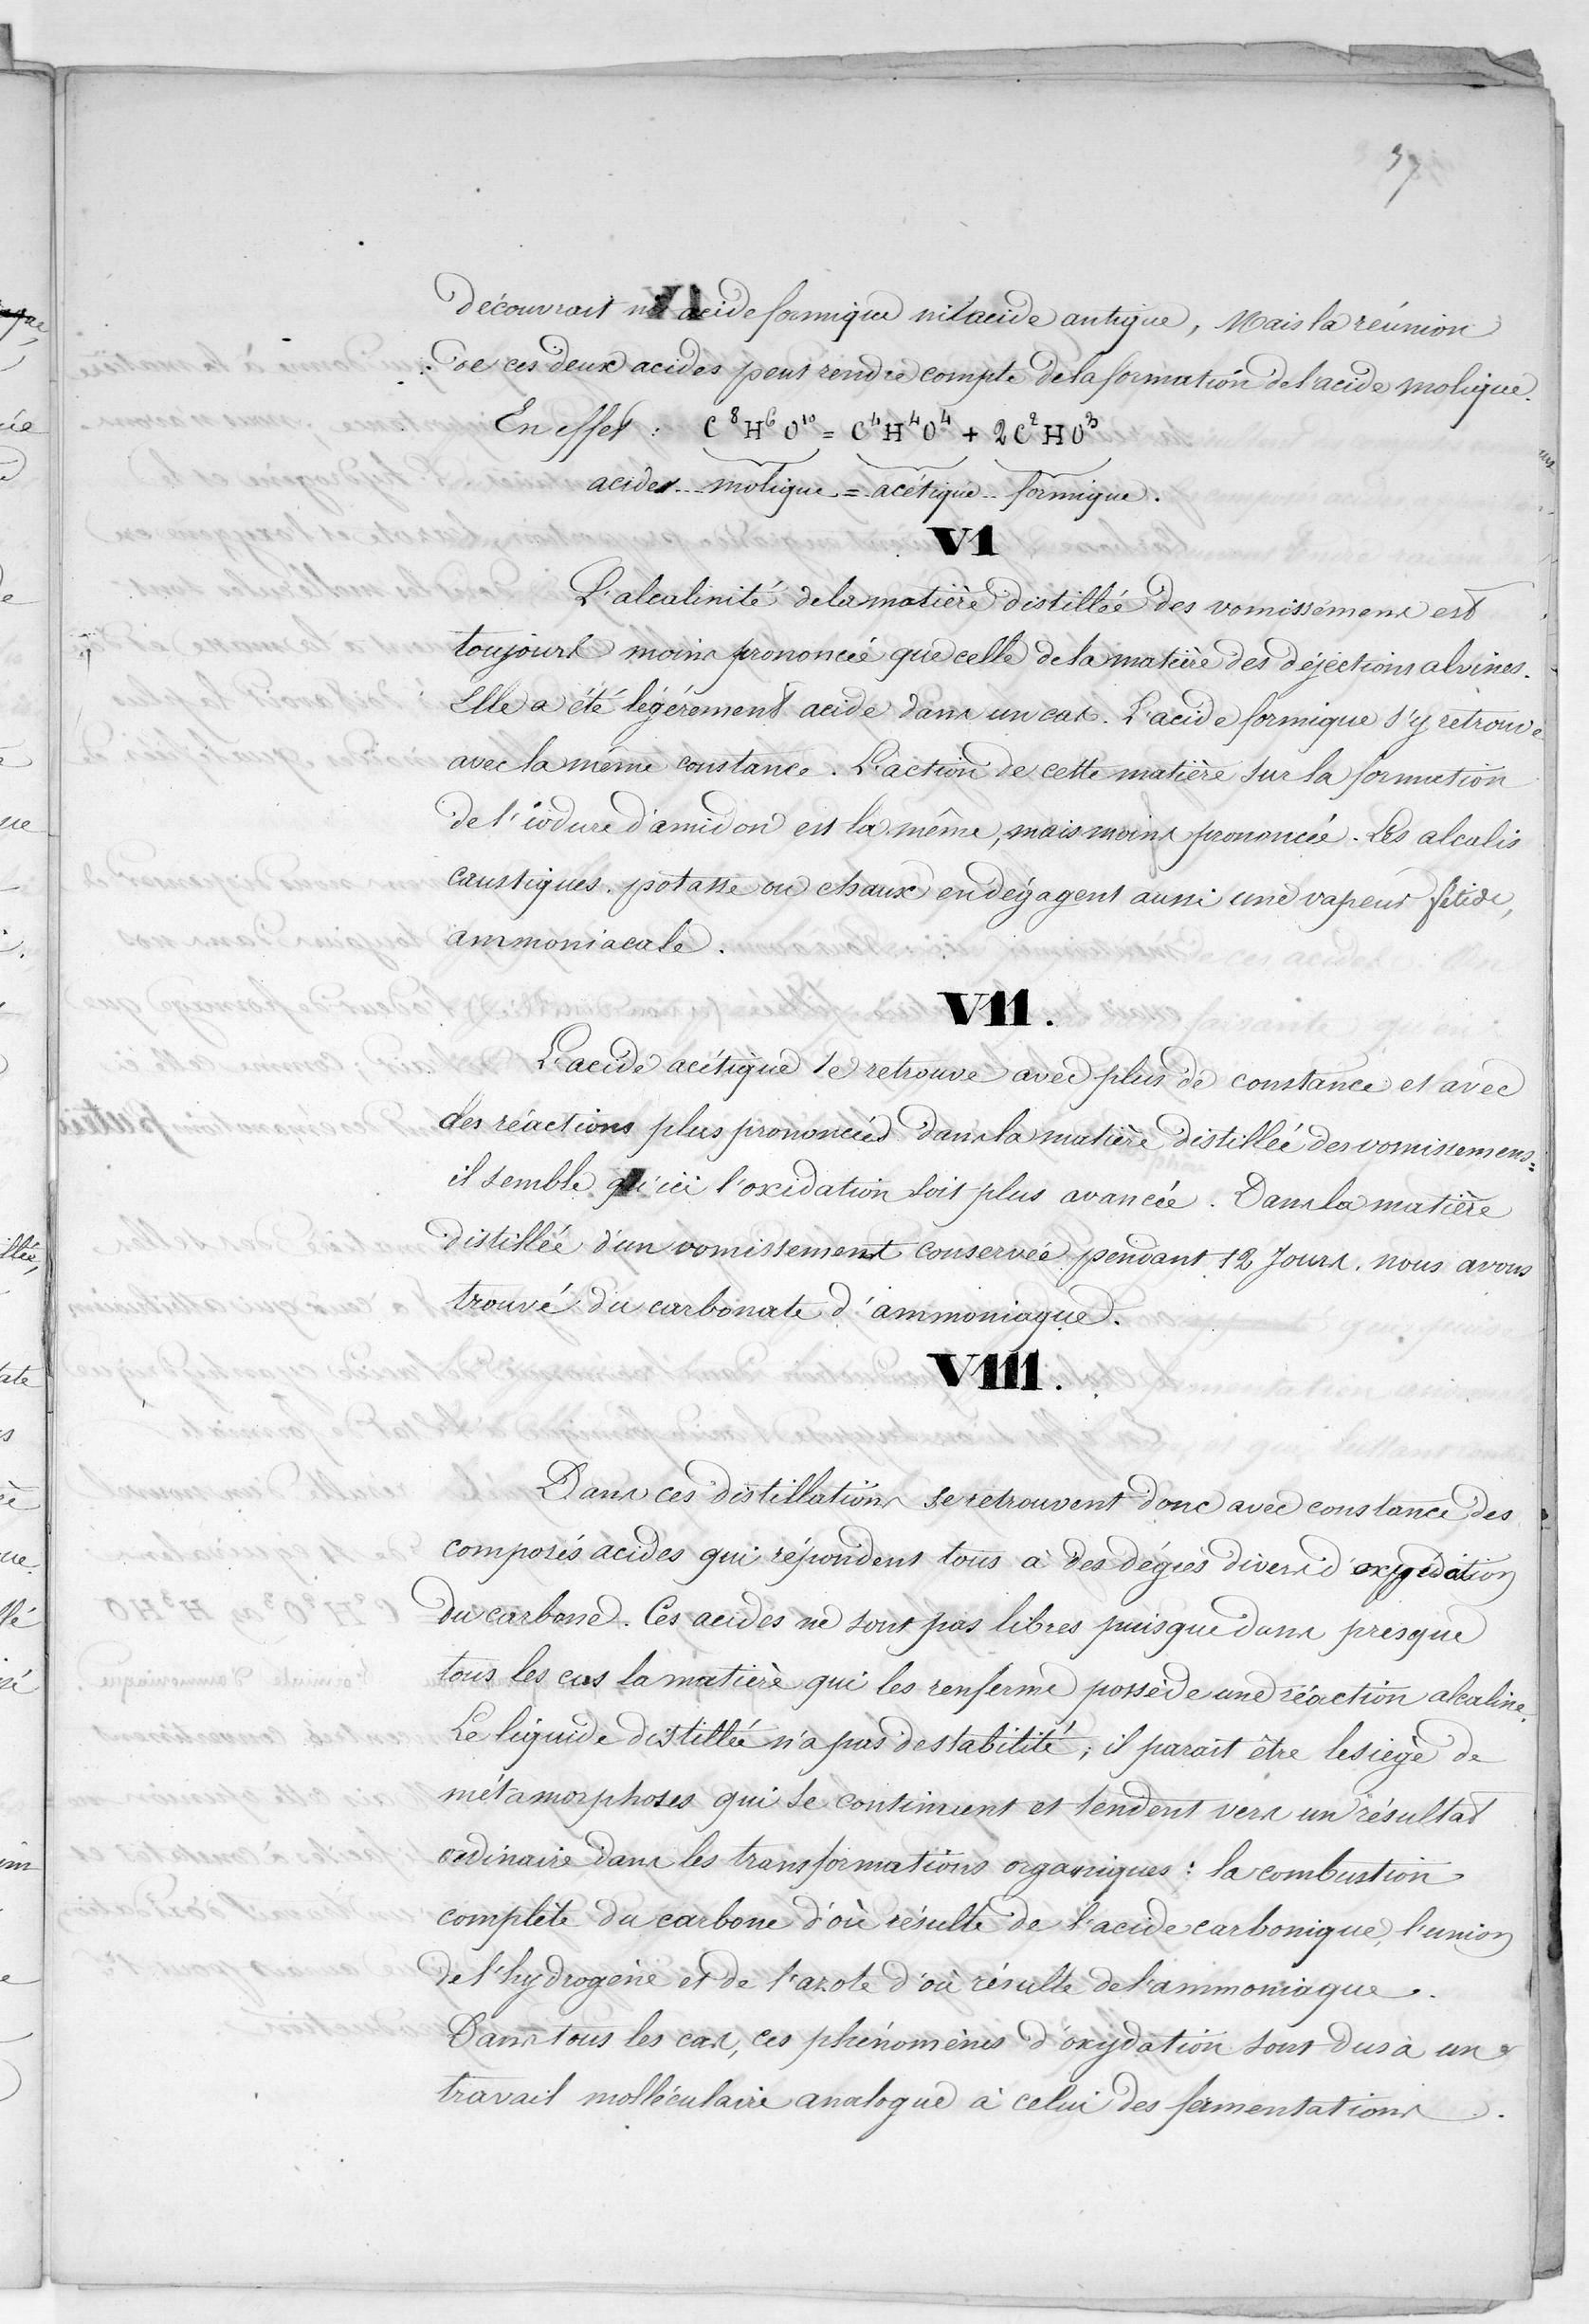 37
découvrait ni acide formique ni l'acide antique, Mais la réunion
de ces deux acides peut rendre compte de la formation de l'acide molique.
En effet : C⁸H⁶O¹⁰ = C⁴H⁴O⁴ + 2C²HO³
acides molique = acétique formique.
VI
L'alcalinité de la matière distillée des vomissemens est
toujours moins prononcée que celle de la matière des déjections alvines.
Elle a été légérement acide dans un cas. L'acide formique s'y retrouve
avec la même constance. L'action de cette matière sur la formation
de l'iodure d'amidon est la même, mais moins prononcée. Les alcalis
caustiques. potasse ou chaux en dégagent aussi une vapeur fétide,
ammoniacale.
VII.
L'acide acétique se retrouve avec plus de constance et avec
des réactions plus prononcées dans la matière distillée des vomissemens:
il semble qu'ici l'oxidation soit plus avancée. Dans la matière
distillée d'un vomissement conservée pendant 12 Jours. nous avons
trouvé du carbonate d'ammoniaque.
VIII.
Dans ces distillations se retrouvent donc avec constance des
composés acides qui répondent tous à des dégrés divers d'oxydation
du carbone. Ces acides ne sont pas libres puisque dans presque
tous les cas la matière qui les renferme possède une réaction alcaline.
Le liquide distillée n'a pas de stabilité; il parait être le siège de
métamorphoses qui se continuent et tendent vers un résultat
ordinaire dans les transformations organiques : la combustion
complète du carbone d'où résulte de l'acide carbonique, l'union
de l'hydrogène et de l'azote d'où résulte de l'ammoniaque.
Dans tous les cas, ces phénomènes d'oxydation sont dus à un
travail molléculaire analogue à celui des fermentations.